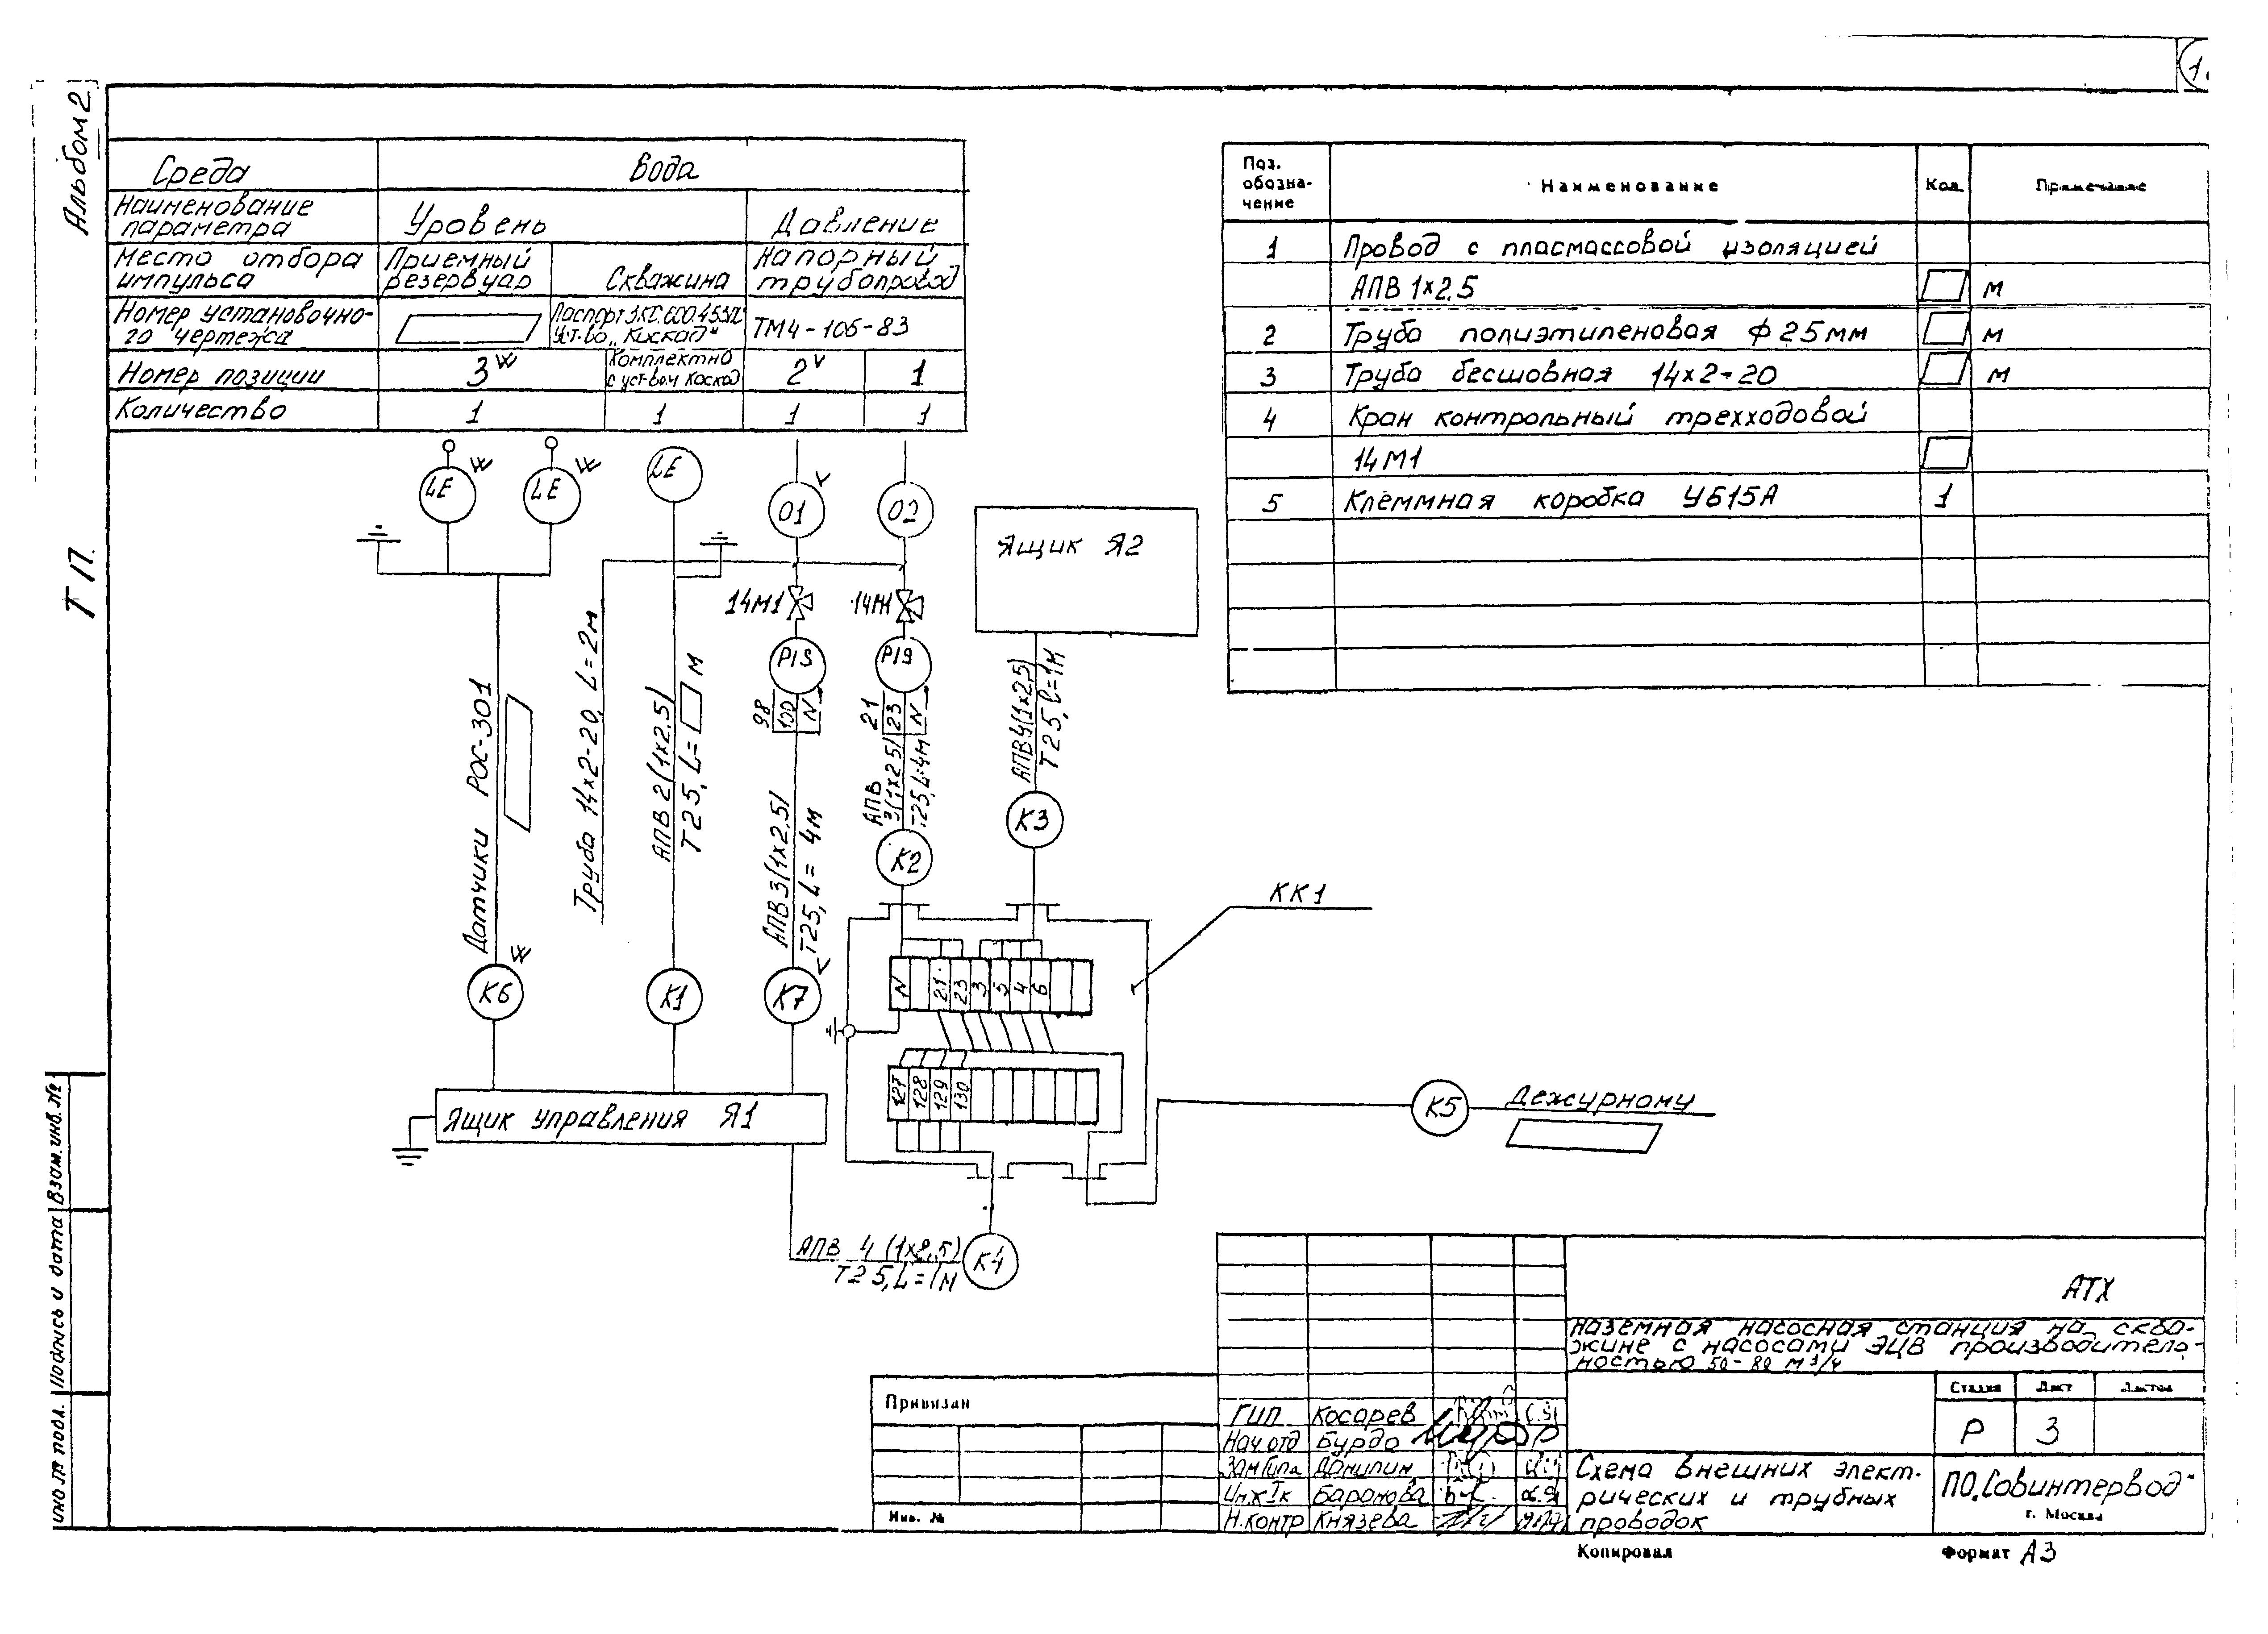 Альбом 2
Т П.
Среда
Вода
Наименование параметра
Уровень
Давление
Место отбора импульса
Приемный резервуар
Скважина
Напорный трубопровод
Номер установочно-
го чертежа
Уст-во „Каскад"
ТМ4-106-83
Номер позиции
3 W
Комплектно
с уст-вом Каскад
2 V
1
Количество
1
1
1
1
Поз. обозна-чение
Наименование
Кол.
Примечание
1
Провод с пласмассовой изоляцией
АПВ 1х2.5
м
2
Труба полиэтиленовая ф 25мм
м
3
Труба бесшовная 14х2-20
м
4
Кран контрольный трехходовой
14М1
5
Клеммная коробка У615А
1
LE
W
LE
W
LE
01
V
02
14М1
14М1
PIS
PIS
98
100
N
21
23
N
Датчики РОС-301
Труба 14х2-20, L=2м
АПВ 2(1х2.5)
Т25, L= м
АПВ 3(1х2.5)
Т25, L= 4м
АПВ
3(1х2.5)
Т25, L=4м
Ящик Я2
АПВ4(1х2.5)
Т25, ℓ=1м
К6
W
К1
К7
V
К2
К3
КК1
N
21
23
3
5
4
6
127
128
129
130
Ящик управления Я1
К5
Дежурному
АПВ 4 (1х2.5)
Т25, L=1м
К4
АТХ
Наземная насосная станция на сква-
жине с насосами ЭЦВ производитель-
ностью 50-80 м3/ч
Привязан
Инв. №
ГИП Косарев
Нач.отд Бурдо
Зам Гипа Данилин
Инж Iк Баранова
Н.контр Князева
Стадия
Лист
Листов
Р
3
Схема внешних элект-
рических и трубных
проводок
ПО„Совинтервод"
г. Москва
Копировал
Формат А3
Взам.инв.№
Подпись и дата
Инв № подл.